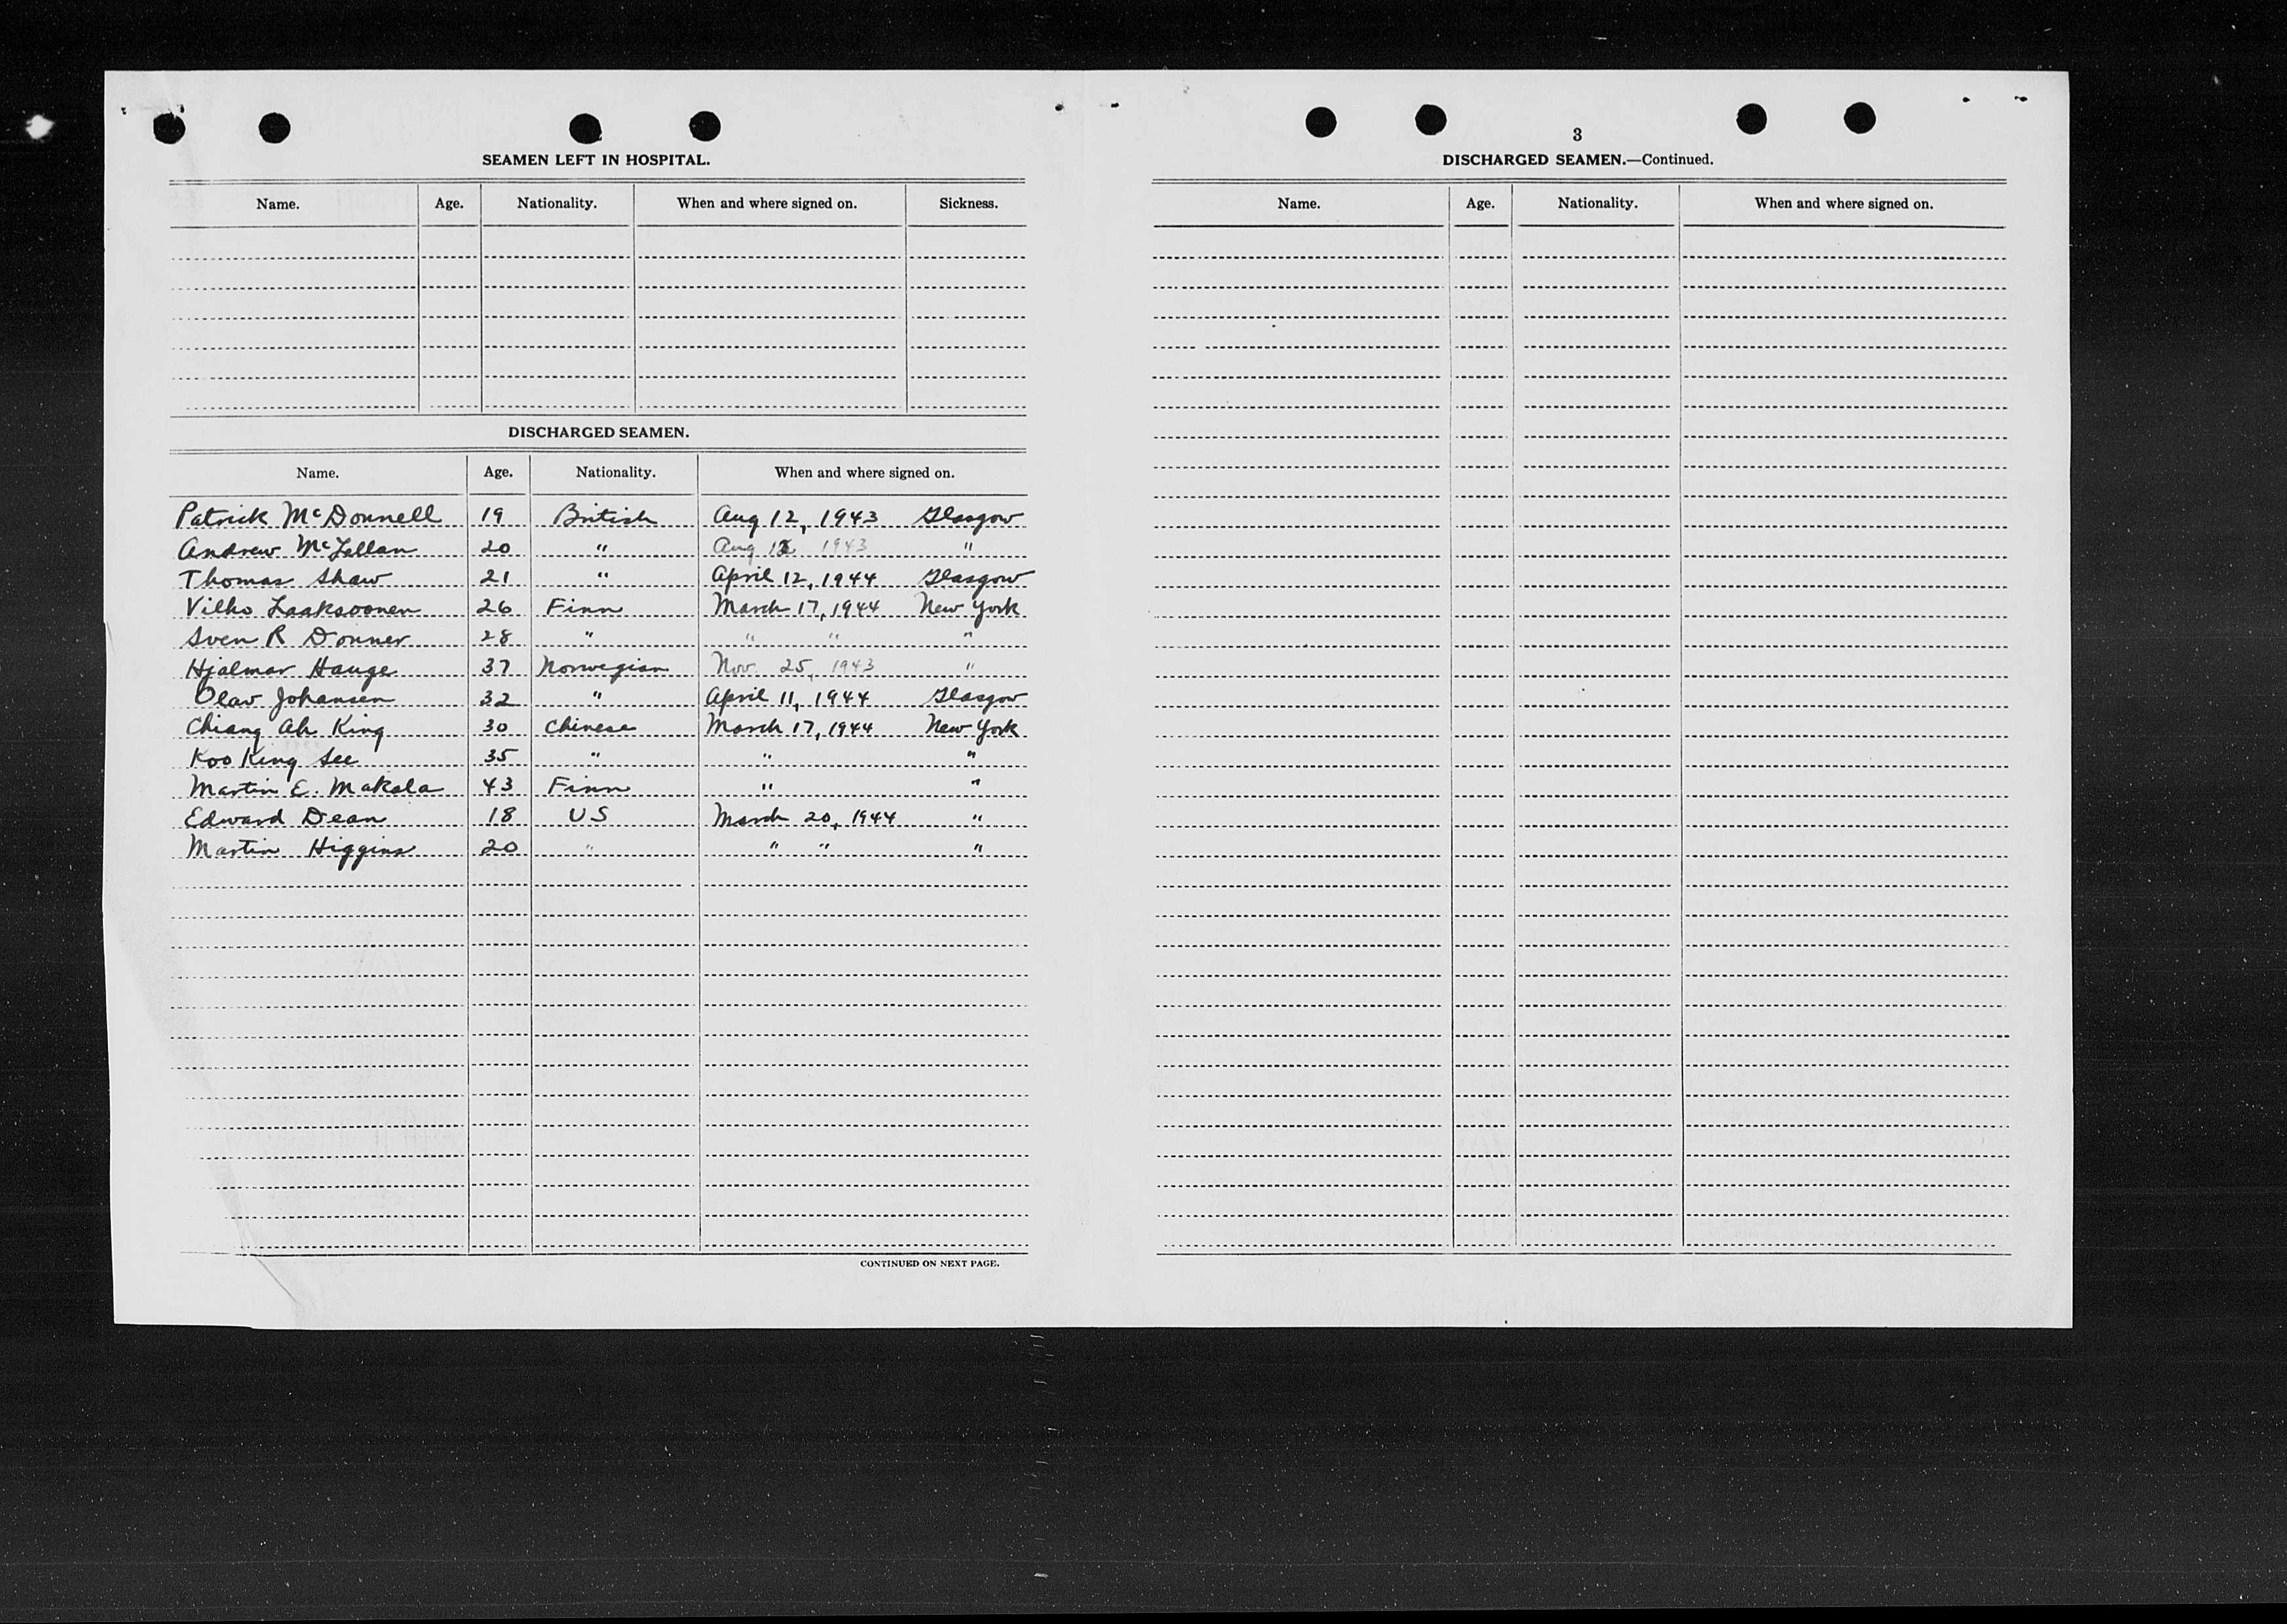 SEAMEN LEFT IN HOSPITAL.
Name. Age. Nationality. When and where signed on. Sickness.
DISCHARGED SEAMEN.
Name. Age. Nationality. When and where signed on.
Patrick McDonnell 19 British Aug 12, 1943 Glasgow
Andrew McLellan 20 " Aug 1943 "
Thomas Shaw 21 " April 12, 1944 Glasgow
Vilho Laaksoonen 26 Finn March 17, 1944 New York
Sven R Donner 28 " " " "
Hjalmar Hauge 37 Norwegian Nov. 25, 1943 "
Olav Johansen 32 " April 11, 1944 Glasgow
Chiang Ah King 30 Chinese March 17, 1944 New York
Koo King See 35 " " "
Martin E. Makela 43 Finn " "
Edward Dean 18 US March 20, 1944 "
Martin Higgins 20 " " " "
CONTINUED ON NEXT PAGE.
3
DISCHARGED SEAMEN.—Continued.
Name. Age. Nationality. When and where signed on.